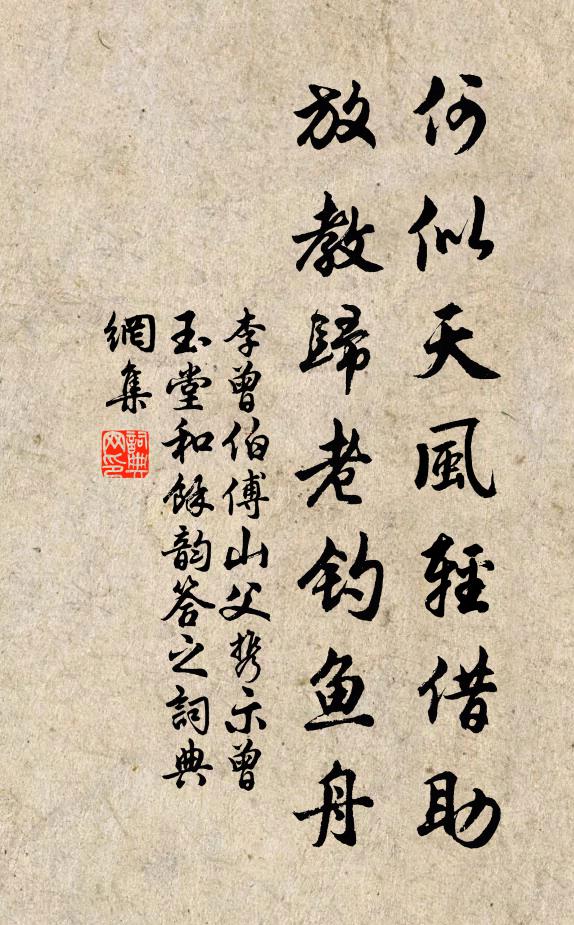 何似天風輕借助
放教歸老釣魚舟
李曾伯傅山父携示曾
玉堂和餘韵答之詞典
網集
詞典
网印